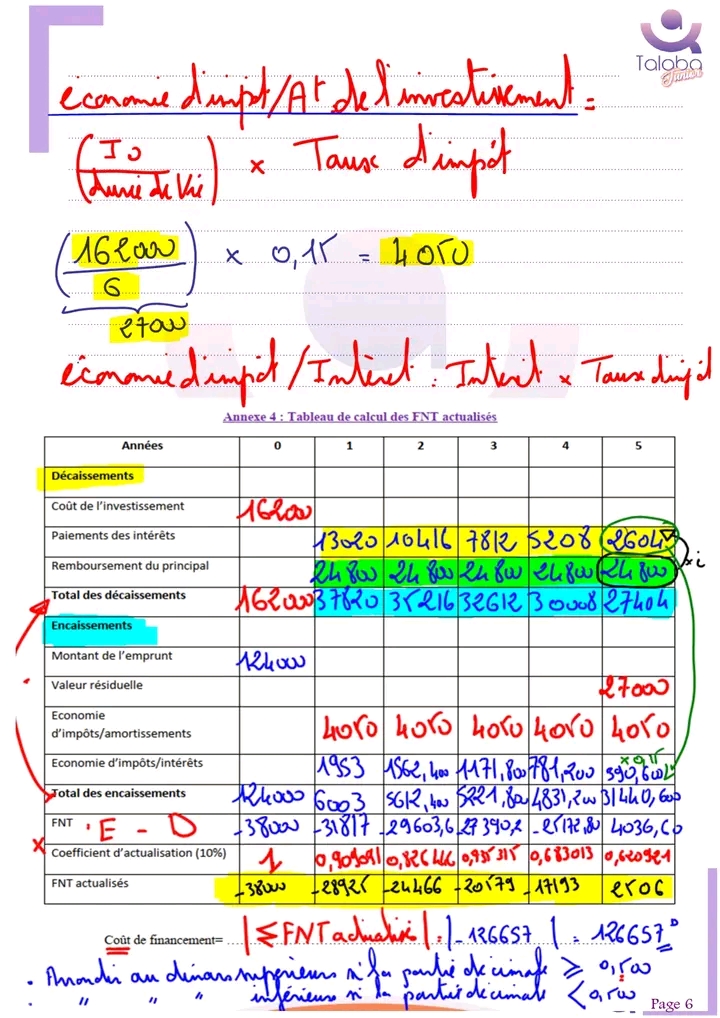 Talaba
Junior
économie d'impôt/At de l'investissement =
(I0 / durée de vie) × Taux d'impôt
(162000 / 6) × 0,15 = 4050
27000
économie d'impôt / Intérêt : Intérêt × Taux d'impôt
Annexe 4 : Tableau de calcul des FNT actualisés
Années 0 1 2 3 4 5
Décaissements
Coût de l'investissement 162000
Paiements des intérêts 13020 10416 7812 5208 2604
Remboursement du principal 24800 24800 24800 24800 24800 × i
Total des décaissements 162000 37820 35216 32612 30008 27404
Encaissements
Montant de l'emprunt 124000
Valeur résiduelle 27000
Economie d'impôts/amortissements 4050 4050 4050 4050 4050
× 0,15
Economie d'impôts/intérêts 1953 1562,400 1171,800 781,200 390,600
Total des encaissements 124000 6003 5612,400 5221,800 4831,200 31440,600
FNT : E - D -38000 -31817 -29603,6 -27390,2 -25176,80 4036,60
Coefficient d'actualisation (10%) 1 0,909091 0,826446 0,751315 0,683013 0,620921
FNT actualisés -38000 -28925 -24466 -20579 -17193 2506
Coût de financement= |Σ FNT actualisé| = |-126657| = 126657D
. Arrondir au dinars supérieurs si la partie décimale ≥ 0,500
. " " " inférieure si la partie décimale < 0,500
Page 6